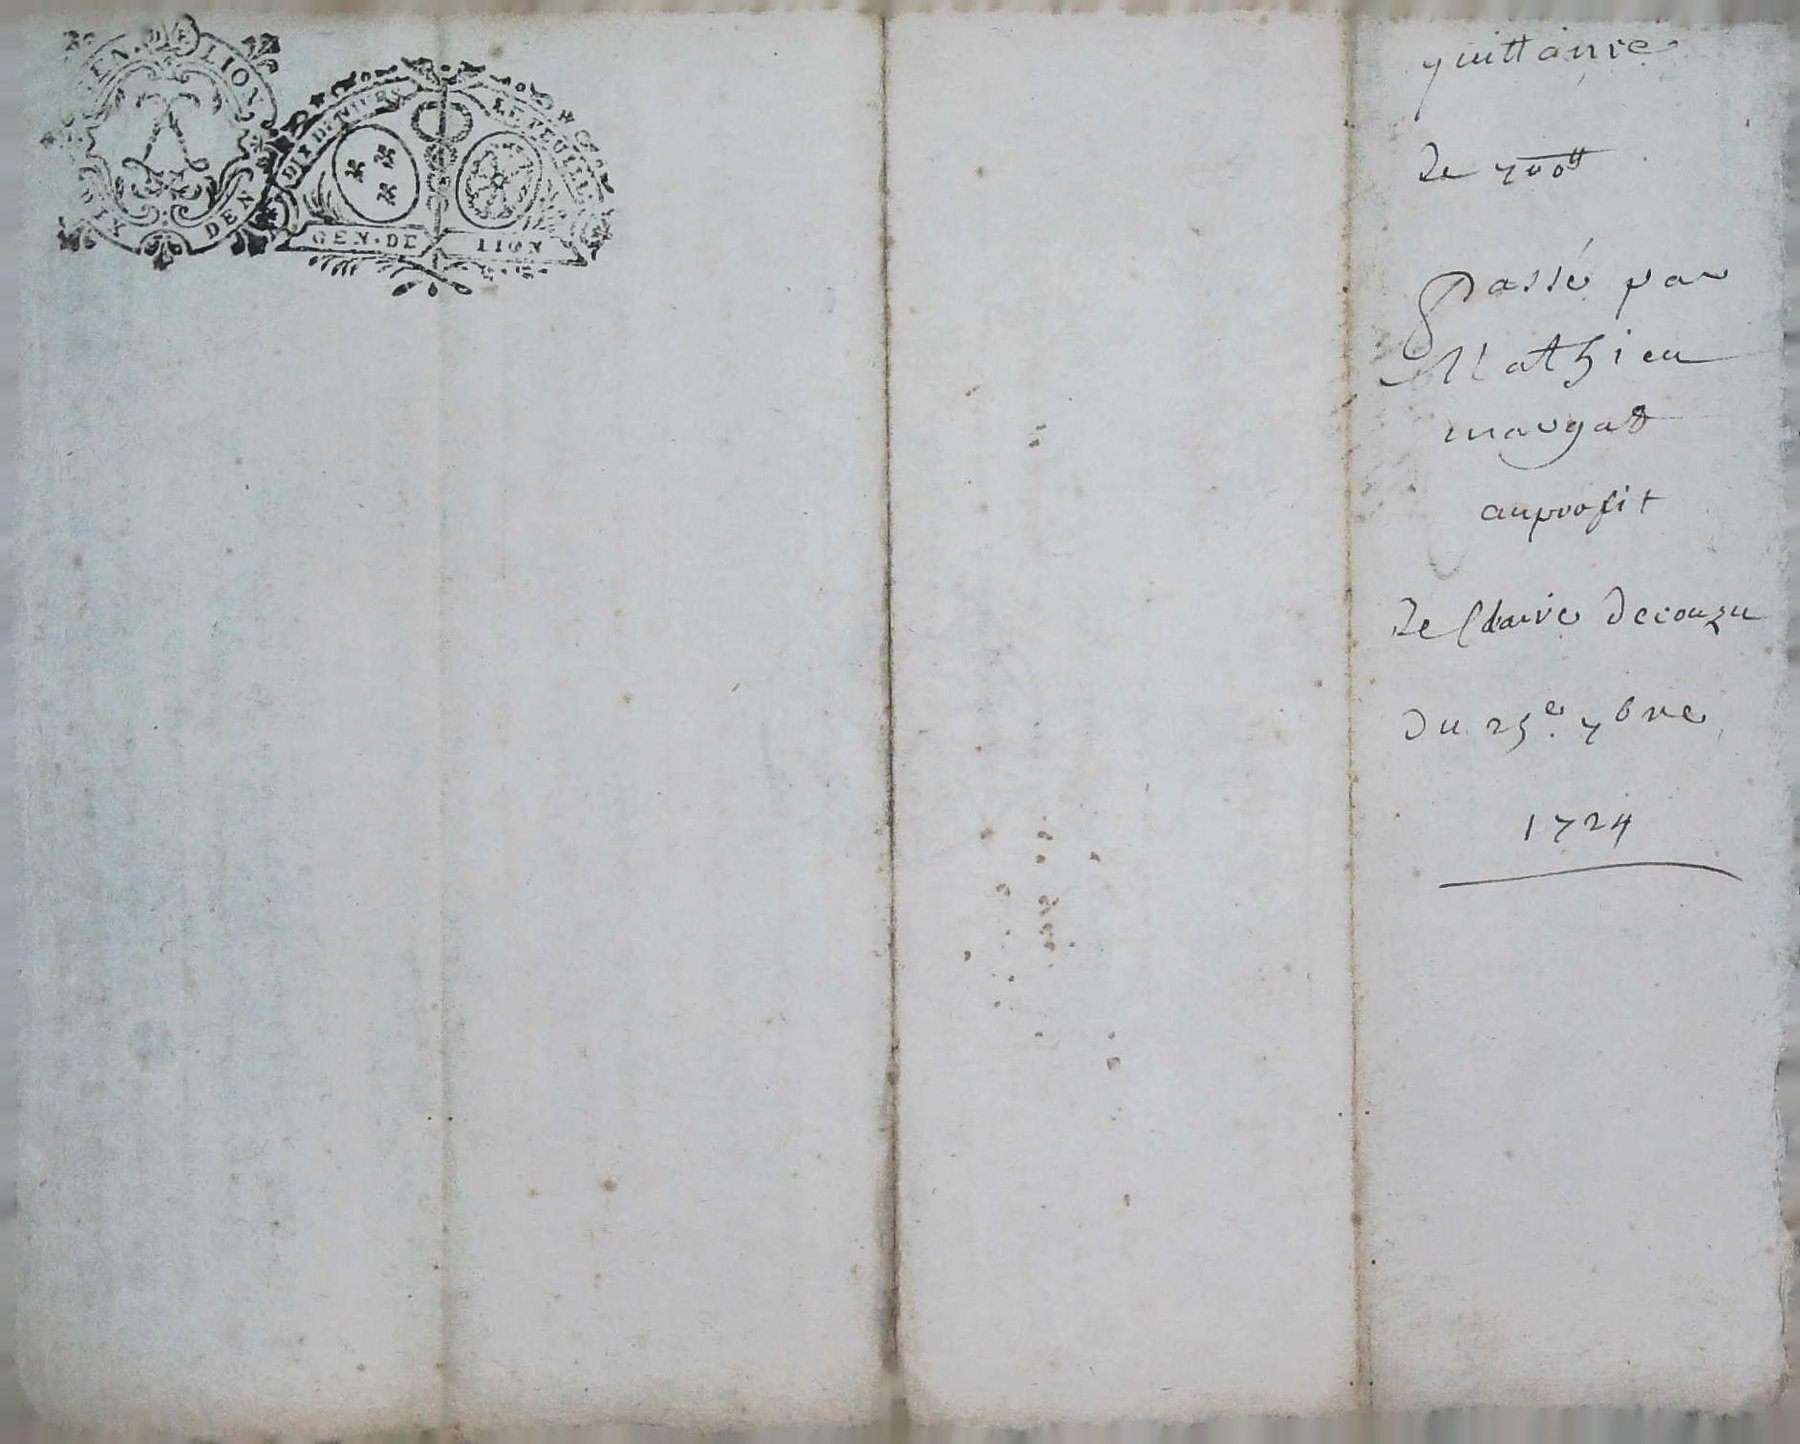 GEN. DE LION
DIX DEN
DIX DE
LE FEUILLE
GEN. DE LION
quittance
de 700tt
Passé par
Mathieu
maugat
au profit
de Claire decouzu
du 25e 7bre
1724